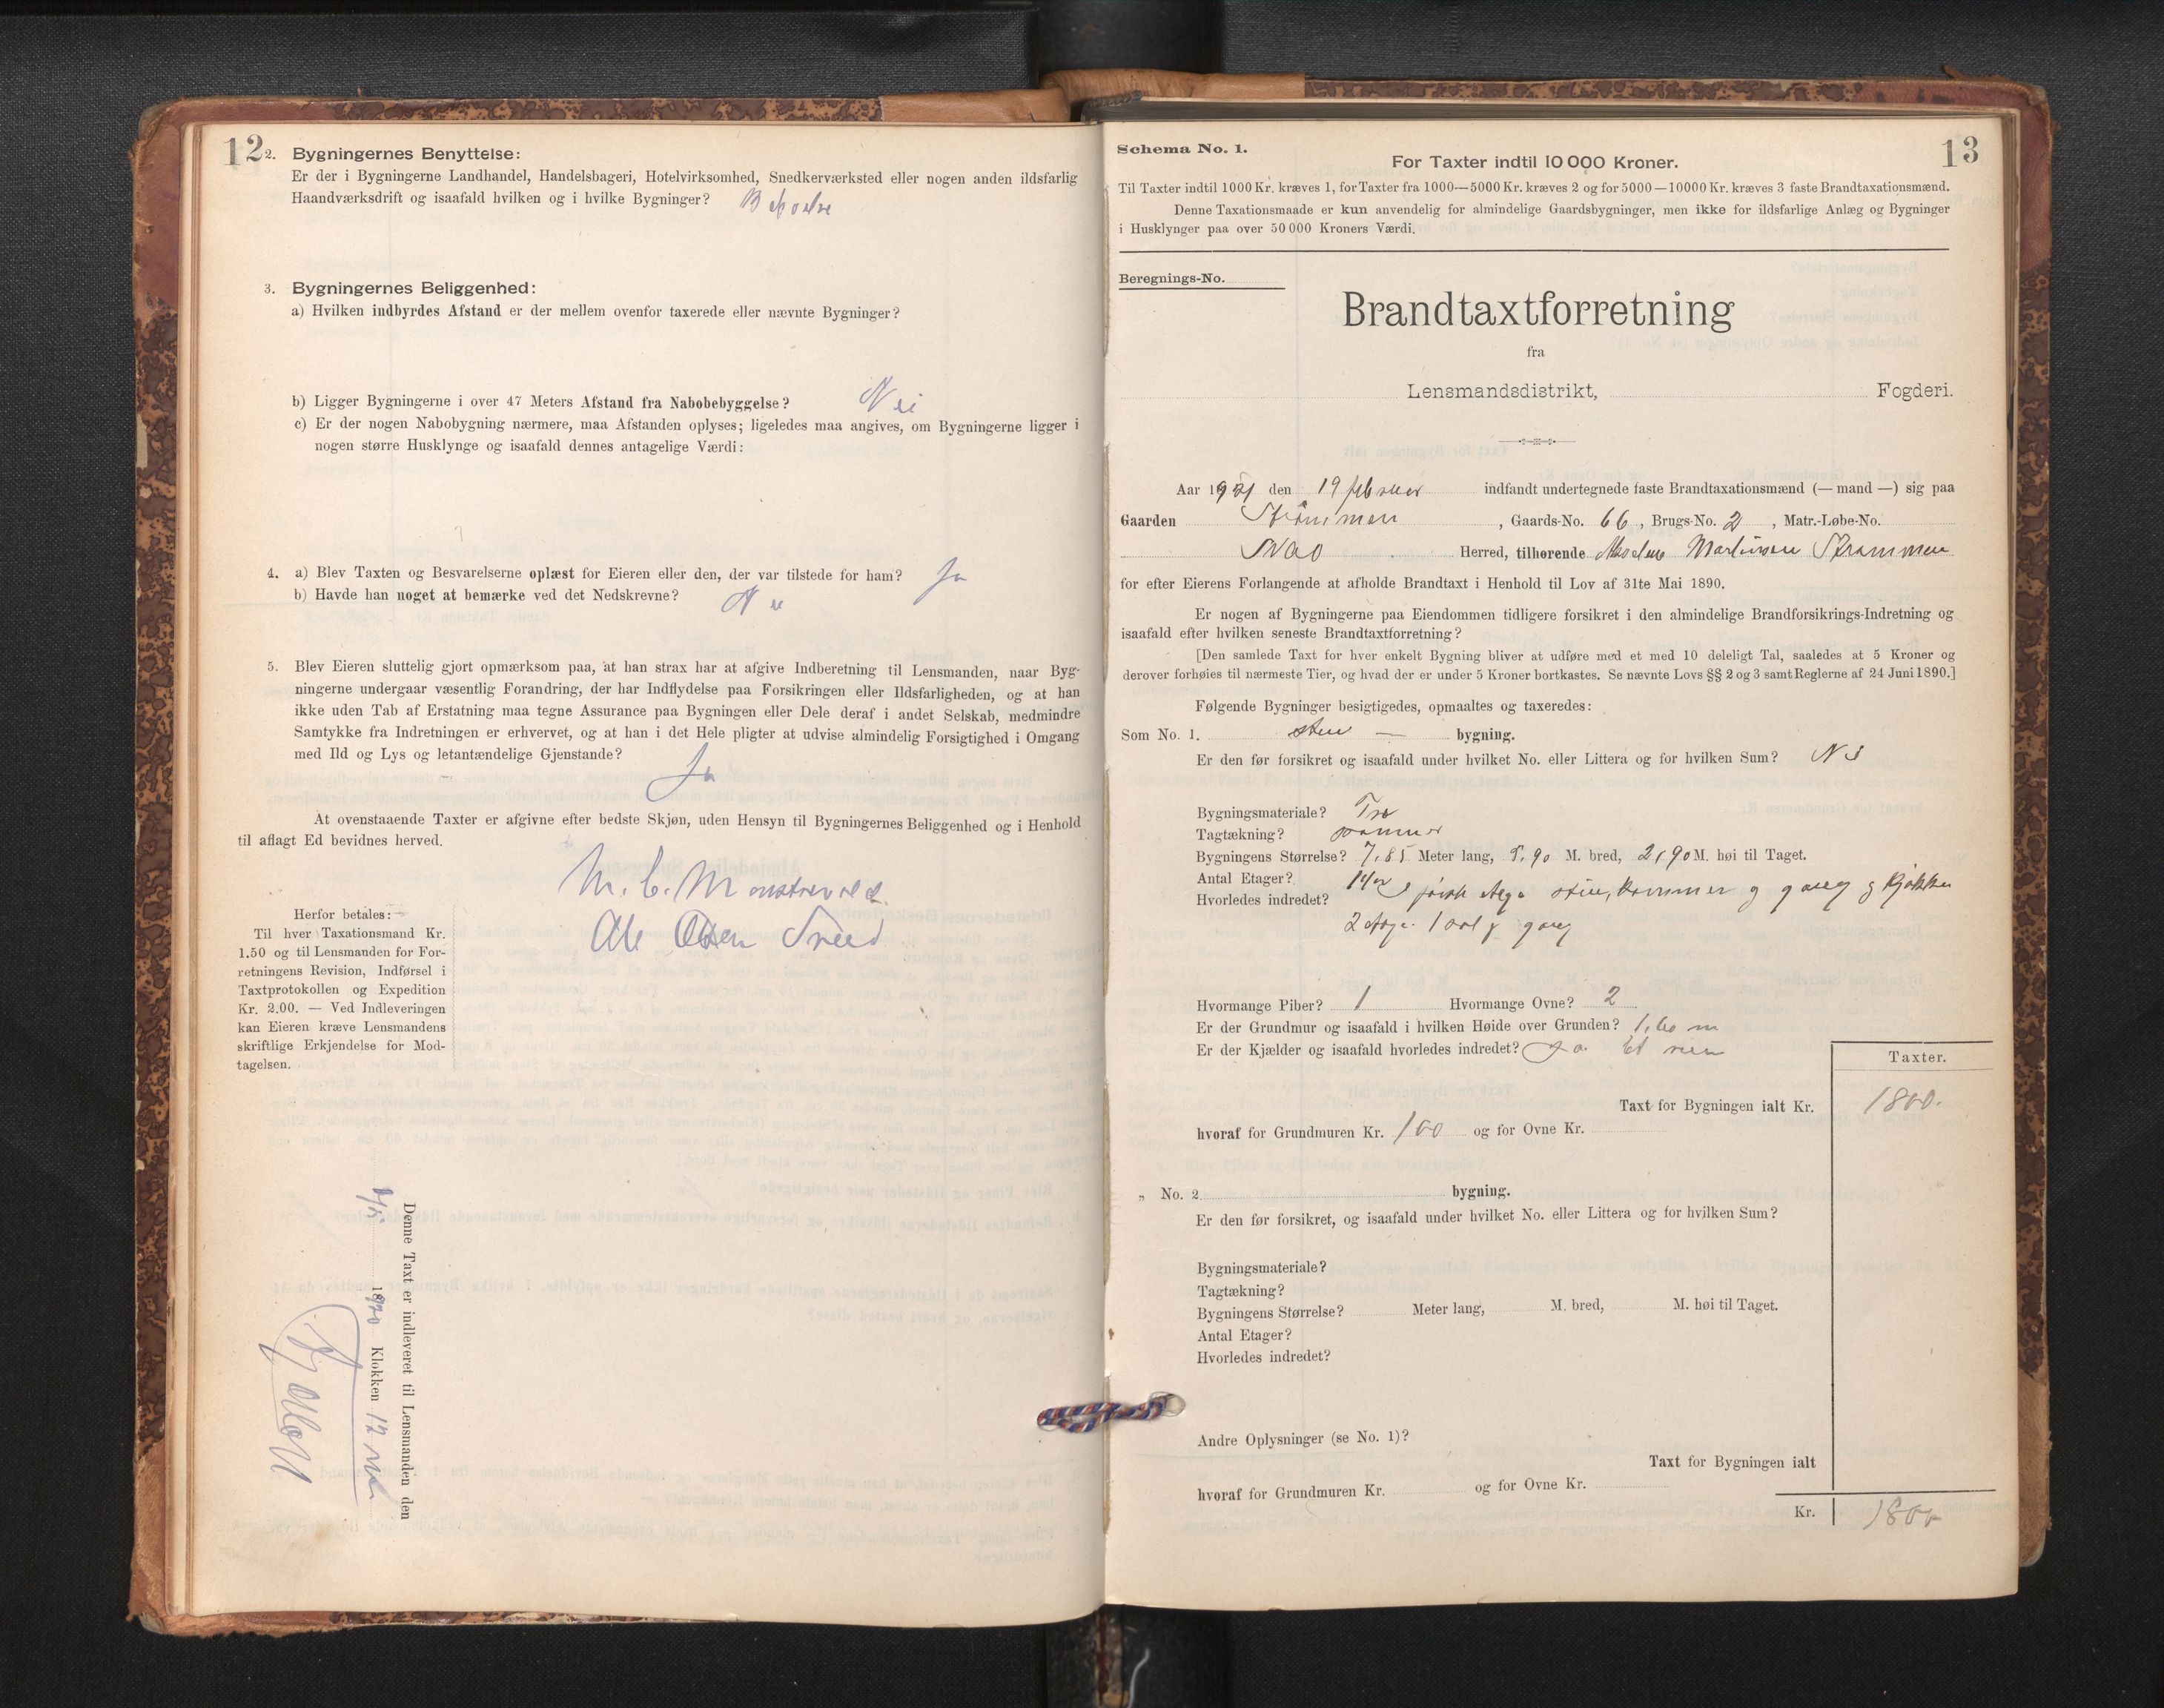 12
2. Bygningernes Benyttelse:
Er der i Bygningerne Landhandel, Handelsbageri, Hotelvirksomhed, Snedkerværksted eller nogen anden ildsfarlig
Haandværksdrift og isaafald hvilken og i hvilke Bygninger?
3. Bygningernes Beliggenhed:
a) Hvilken indbyrdes Afstand er der mellem ovenfor taxerede eller nævnte Bygninger?
b) Ligger Bygningerne i over 47 Meters Afstand fra Nabobebyggelse? Nei
c) Er der nogen Nabobygning nærmere, maa Afstanden oplyses; ligeledes maa angives, om Bygningerne ligger i
nogen større Husklynge og isaafald dennes antagelige Værdi:
4. a) Blev Taxten og Besvarelserne oplæst for Eieren eller den, der var tilstede for ham? Ja
b) Havde han noget at bemærke ved det Nedskrevne? Nei
5. Blev Eieren sluttelig gjort opmærksom paa, at han strax har at afgive Indberetning til Lensmanden, naar Byg-
ningerne undergaar væsentlig Forandring, der har Indflydelse paa Forsikringen eller Ildsfarligheden, og at han
ikke uden Tab af Erstatning maa tegne Assurance paa Bygningen eller Dele deraf i andet Selskab, medmindre
Samtykke fra Indretningen er erhvervet, og at han i det Hele pligter at udvise almindelig Forsigtighed i Omgang
med Ild og Lys og letantændelige Gjenstande? Ja
At ovenstaaende Taxter er afgivne efter bedste Skjøn, uden Hensyn til Bygningernes Beliggenhed og i Henhold
til aflagt Ed bevidnes herved.
M. C. Monstrevold
Ole Olsen
Herfor betales:
Til hver Taxationsmand Kr.
1.50 og til Lensmanden for For-
retningens Revision, Indførsel i
Taxtprotokollen og Expedition
Kr. 2.00. — Ved Indleveringen
kan Eieren kræve Lensmandens
skriftlige Erkjendelse for Mod-
tagelsen.
Denne Taxt er indleveret til Lensmanden den
1920 Klokken 12
13
Schema No. 1.
For Taxter indtil 10 000 Kroner.
Til Taxter indtil 1000 Kr. kræves 1, for Taxter fra 1000—5000 Kr. kræves 2 og for 5000—10000 Kr. kræves 3 faste Brandtaxationsmænd.
Denne Taxationsmaade er kun anvendelig for almindelige Gaardsbygninger, men ikke for ildsfarlige Anlæg og Bygninger
i Husklynger paa over 50 000 Kroners Værdi.
Beregnings-No.
Brandtaxtforretning
fra
Lensmandsdistrikt, Fogderi.
Aar 1921 den 19 februar indfandt undertegnede faste Brandtaxationsmænd (— mand —) sig paa
Gaarden Strømmen, Gaards-No. 66, Brugs-No. 2, Matr.-Løbe-No.
Herred, tilhørende Martinsen Strømmen
for efter Eierens Forlangende at afholde Brandtaxt i Henhold til Lov af 31te Mai 1890.
Er nogen af Bygningerne paa Eiendommen tidligere forsikret i den almindelige Brandforsikrings-Indretning og
isaafald efter hvilken seneste Brandtaxtforretning?
[Den samlede Taxt for hver enkelt Bygning bliver at udføre med et med 10 deleligt Tal, saaledes at 5 Kroner og
derover forhøies til nærmeste Tier, og hvad der er under 5 Kroner bortkastes. Se nævnte Lovs §§ 2 og 3 samt Reglerne af 24 Juni 1890.]
Følgende Bygninger besigtigedes, opmaaltes og taxeredes:
Som No. 1. stue — bygning.
Er den før forsikret og isaafald under hvilket No. eller Littera og for hvilken Sum?
Bygningsmateriale? Træ
Tagtækning? panner
Bygningens Størrelse? 7,85 Meter lang, 5,90 M. bred, 2,90 M. høi til Taget.
Antal Etager?
Hvorledes indredet? stue, kammer g gang g Kjøkken
gang
Hvormange Piber? 1 Hvormange Ovne? 2
Er der Grundmur og isaafald i hvilken Høide over Grunden? 1,60 m
Er der Kjælder og isaafald hvorledes indredet? Ja
Taxter.
Taxt for Bygningen ialt Kr. 1800.
hvoraf for Grundmuren Kr. 100 og for Ovne Kr.
„ No. 2 bygning.
Er den før forsikret, og isaafald under hvilket No. eller Littera og for hvilken Sum?
Bygningsmateriale?
Tagtækning?
Bygningens Størrelse? Meter lang, M. bred, M. høi til Taget.
Antal Etager?
Hvorledes indredet?
Andre Oplysninger (se No. 1)?
Taxt for Bygningen ialt
hvoraf for Grundmuren Kr. og for Ovne Kr.
Kr. 1800